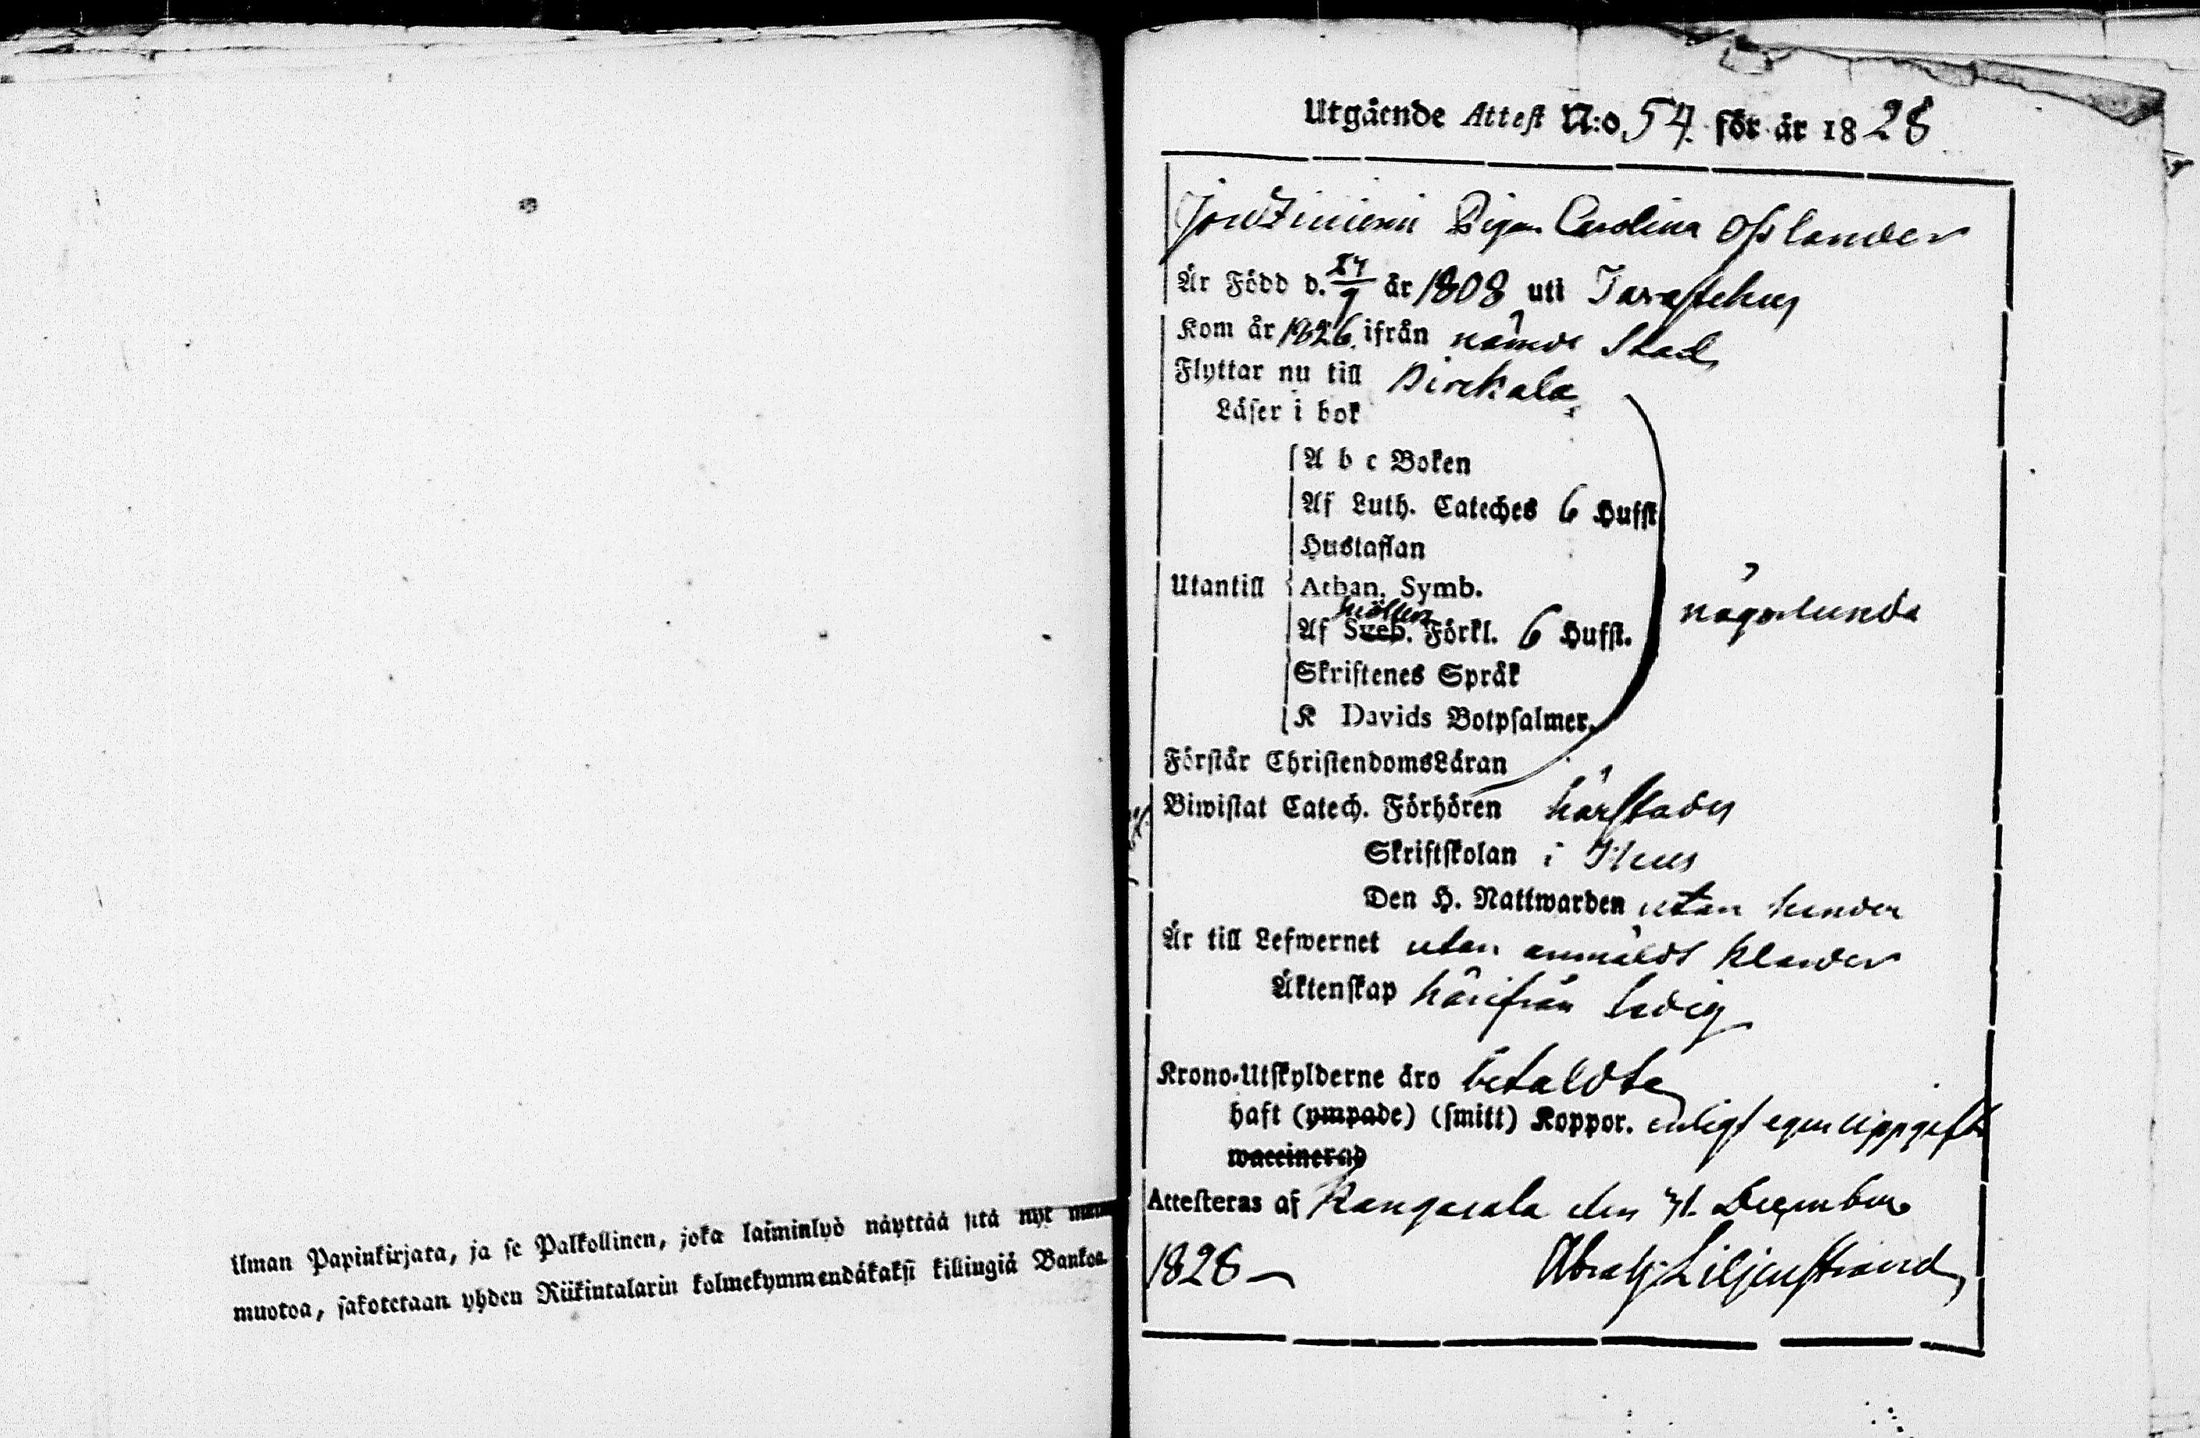 ilman Papinkirjata, ja se Palkollinen, joka laiminlyö näyttää sitä nyt
muotoa, sakotetaan yhden Riikintalarin kolmekymmendäkaksi killingiä Bankoa
Utgående Attest N:o 54. för år 1828
Pigan Carolina Osslander
Är Född d. 27/9 år 1808 uti Tavastehus
Kom år 1826 ifrån nämde Stad
Flyttar nu till Birckala
Läser i bok
A b c Boken
Af Luth. Cateches 6 Hufst
Hustaflan
Utantill Athan. Symb.
Af Sveb. Förkl. 6 Hufst. någorlunda
Skriftenes Språk
K Davids Botpsalmer.
Förstår ChristendomsLäran
Biwistat Catech. Förhören härstädes
Skriftskolan i T:hus
Den H. Nattwarden utan hinder
Är till Lefwernet utan anmäldt klander
Äktenskap härifrån ledig
Krono-Utskylderne äro betaldte
haft (ympade) (smitt) Koppor. enligt egen uppgift
waccinerad
Attesteras af Kangasala den 31. December
1828 Abrah: Liljenstrand